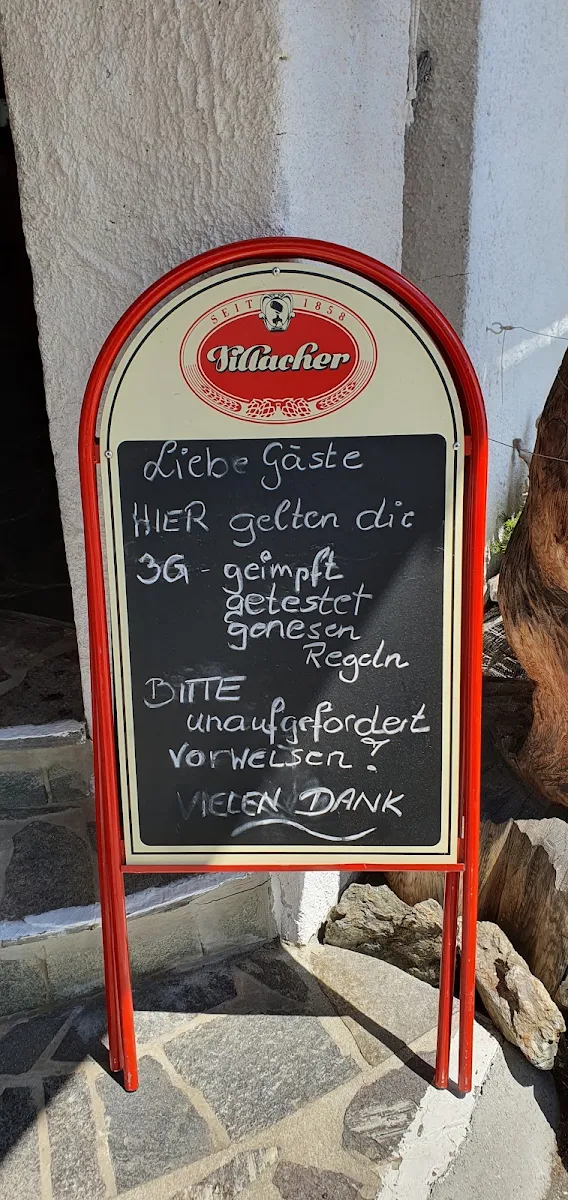 SEIT 1858
Villacher
Liebe Gäste
HIER gelten die
3G - geimpft
getestet
genesen
Regeln
BITTE
unaufgefordert
vorweisen!
VIELEN DANK